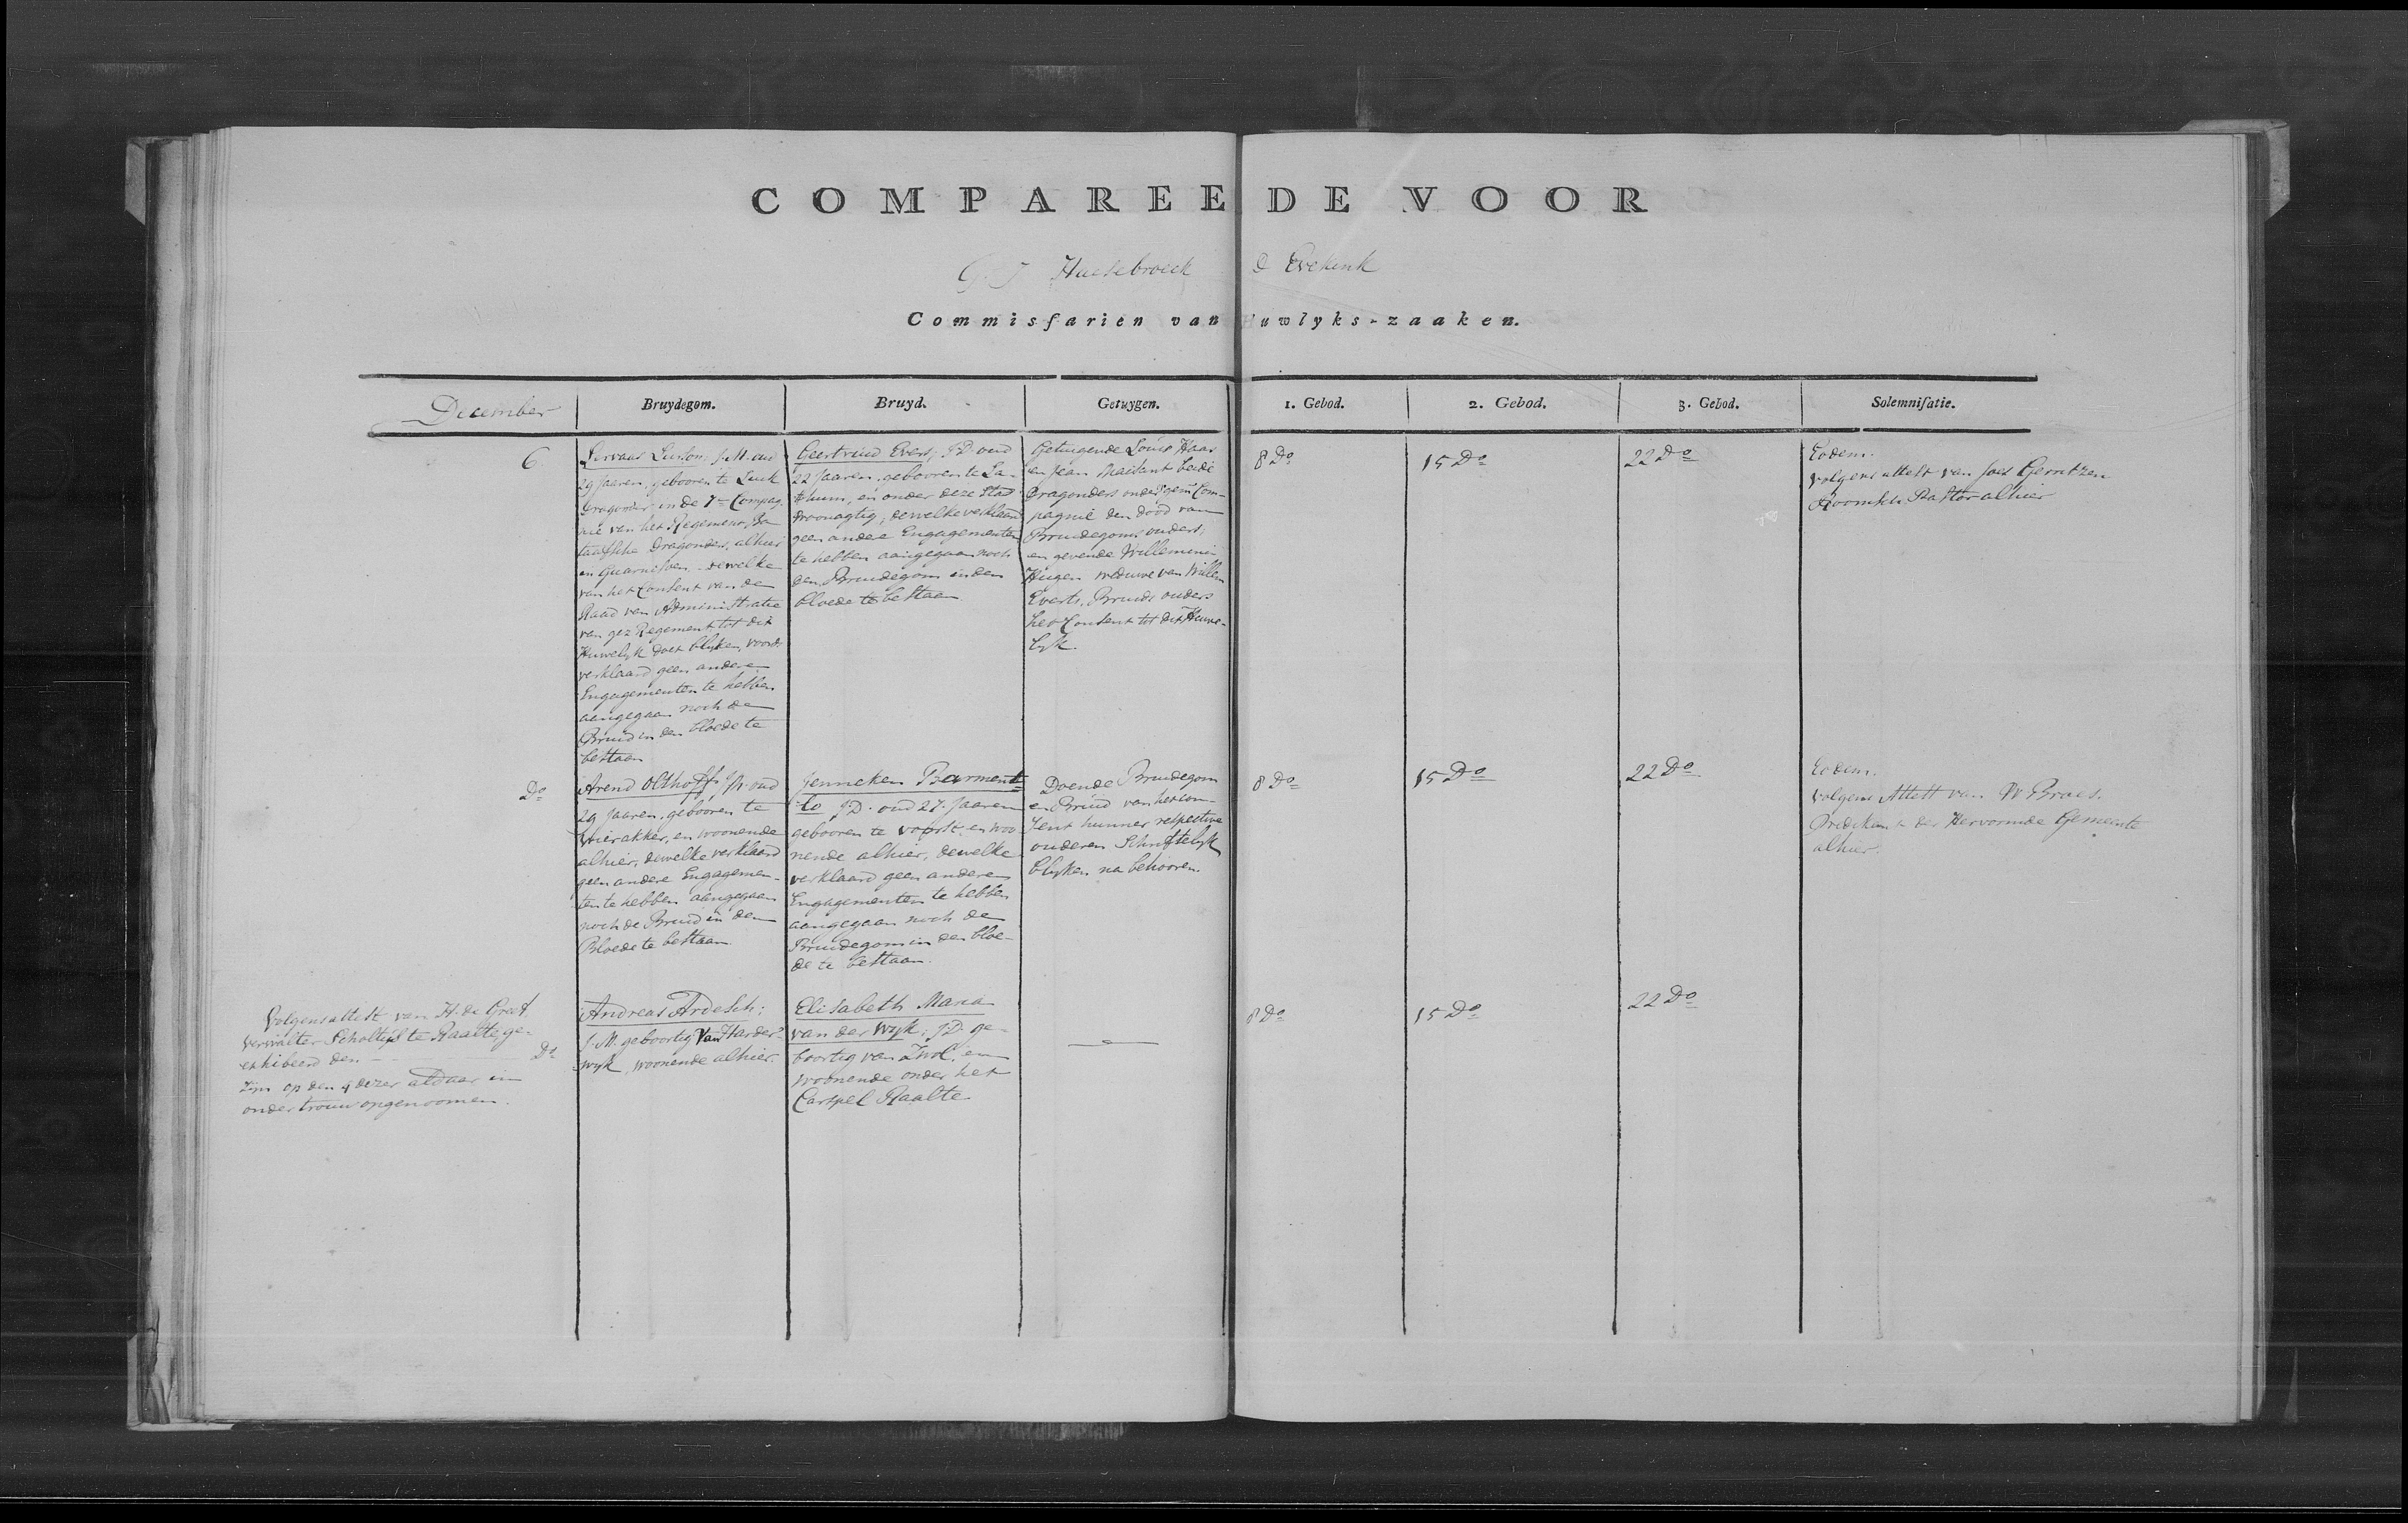 COMPAREE DE VOOR
G. J. Haesebroeck D Evekink
Commissarien van Huwlyks-zaaken.
December
Bruydegom.
Bruyd.
Getuygen.
1. Gebod.
2. Gebod.
3. Gebod.
Solemnisatie.
6
Servaas Lurson; J.M. oud
29 Jaaren, gebooren te Luik
Dragonder in de 7e Compag
nie van het Regiment Ba
taafsche Dragonders, alhier
in Guarnisoen, dewelke
van het Consent van de
Raad van Administratie
van gez Regement tot dit
Huwelijk doet blijken, voorts
verklaard geen andere
Engagementen te hebben
aangegaan noch de
Bruid in den bloede te
bestaan
Geertruid Evers; J.D. oud
22 Jaaren, gebooren te La-
thum, en onder deze Stad
woonagtig, dewelke verklaard
geen andere Engagementen
te hebben aangegaan noch
den Bruidegom in den
bloede te bestaan
Getuigende Louis Haas
en Jean Maisant beide
Dragonders onder gem Com-
pagnie den dood van
Bruidegoms ouders,
en gevende Willemina
Hugen weduwe van Willem
Everts, Bruids ouders
het Consent tot dit Huwe-
lijk.
8 Do
15 Do
22 Do
Eodem.
volgens attest van Joes Gerritzen
Roomsch Pastor alhier
Do
Arend Olthoff, J.M. oud
29 Jaaren, gebooren te
Wierakker, en woonende
alhier, dewelke verklaard
geen andere Engagemen-
ten te hebben aangegaan
noch de Bruid in den
Bloede te bestaan
Jenneken Barment
lo J.D. oud 27. Jaaren
gebooren te Voorst, en woo
nende alhier, dewelke
verklaard geen anderen
Engagementen te hebben
aangegaan noch de
Bruidegom in den bloe-
de te bestaan.
Doende Bruidegom
en Bruid van het con-
sent hunner respective
ouderen Schriftelijk
blijken na behooren.
8 Do
15 Do
22 Do
Eodem.
volgens Attest van W Broes.
Predikant der Hervormde Gemeente
alhier.
Volgens attest van H. de Groot
verwalter Scholtijs te Raalte, ge-
exhibeerd den
zijn op den 4 dezer aldaar in
ondertrouw opgenoomen.
Do
Andreas Ardesch;
J.M. geboortig Van Harder-
wijk, woonende alhier.
Elisabeth Maria
van der Wijk; J.D. ge-
boortig van Zwol, en
woonende onder het
Carspel Raalte
8 Do
15 Do
22 Do